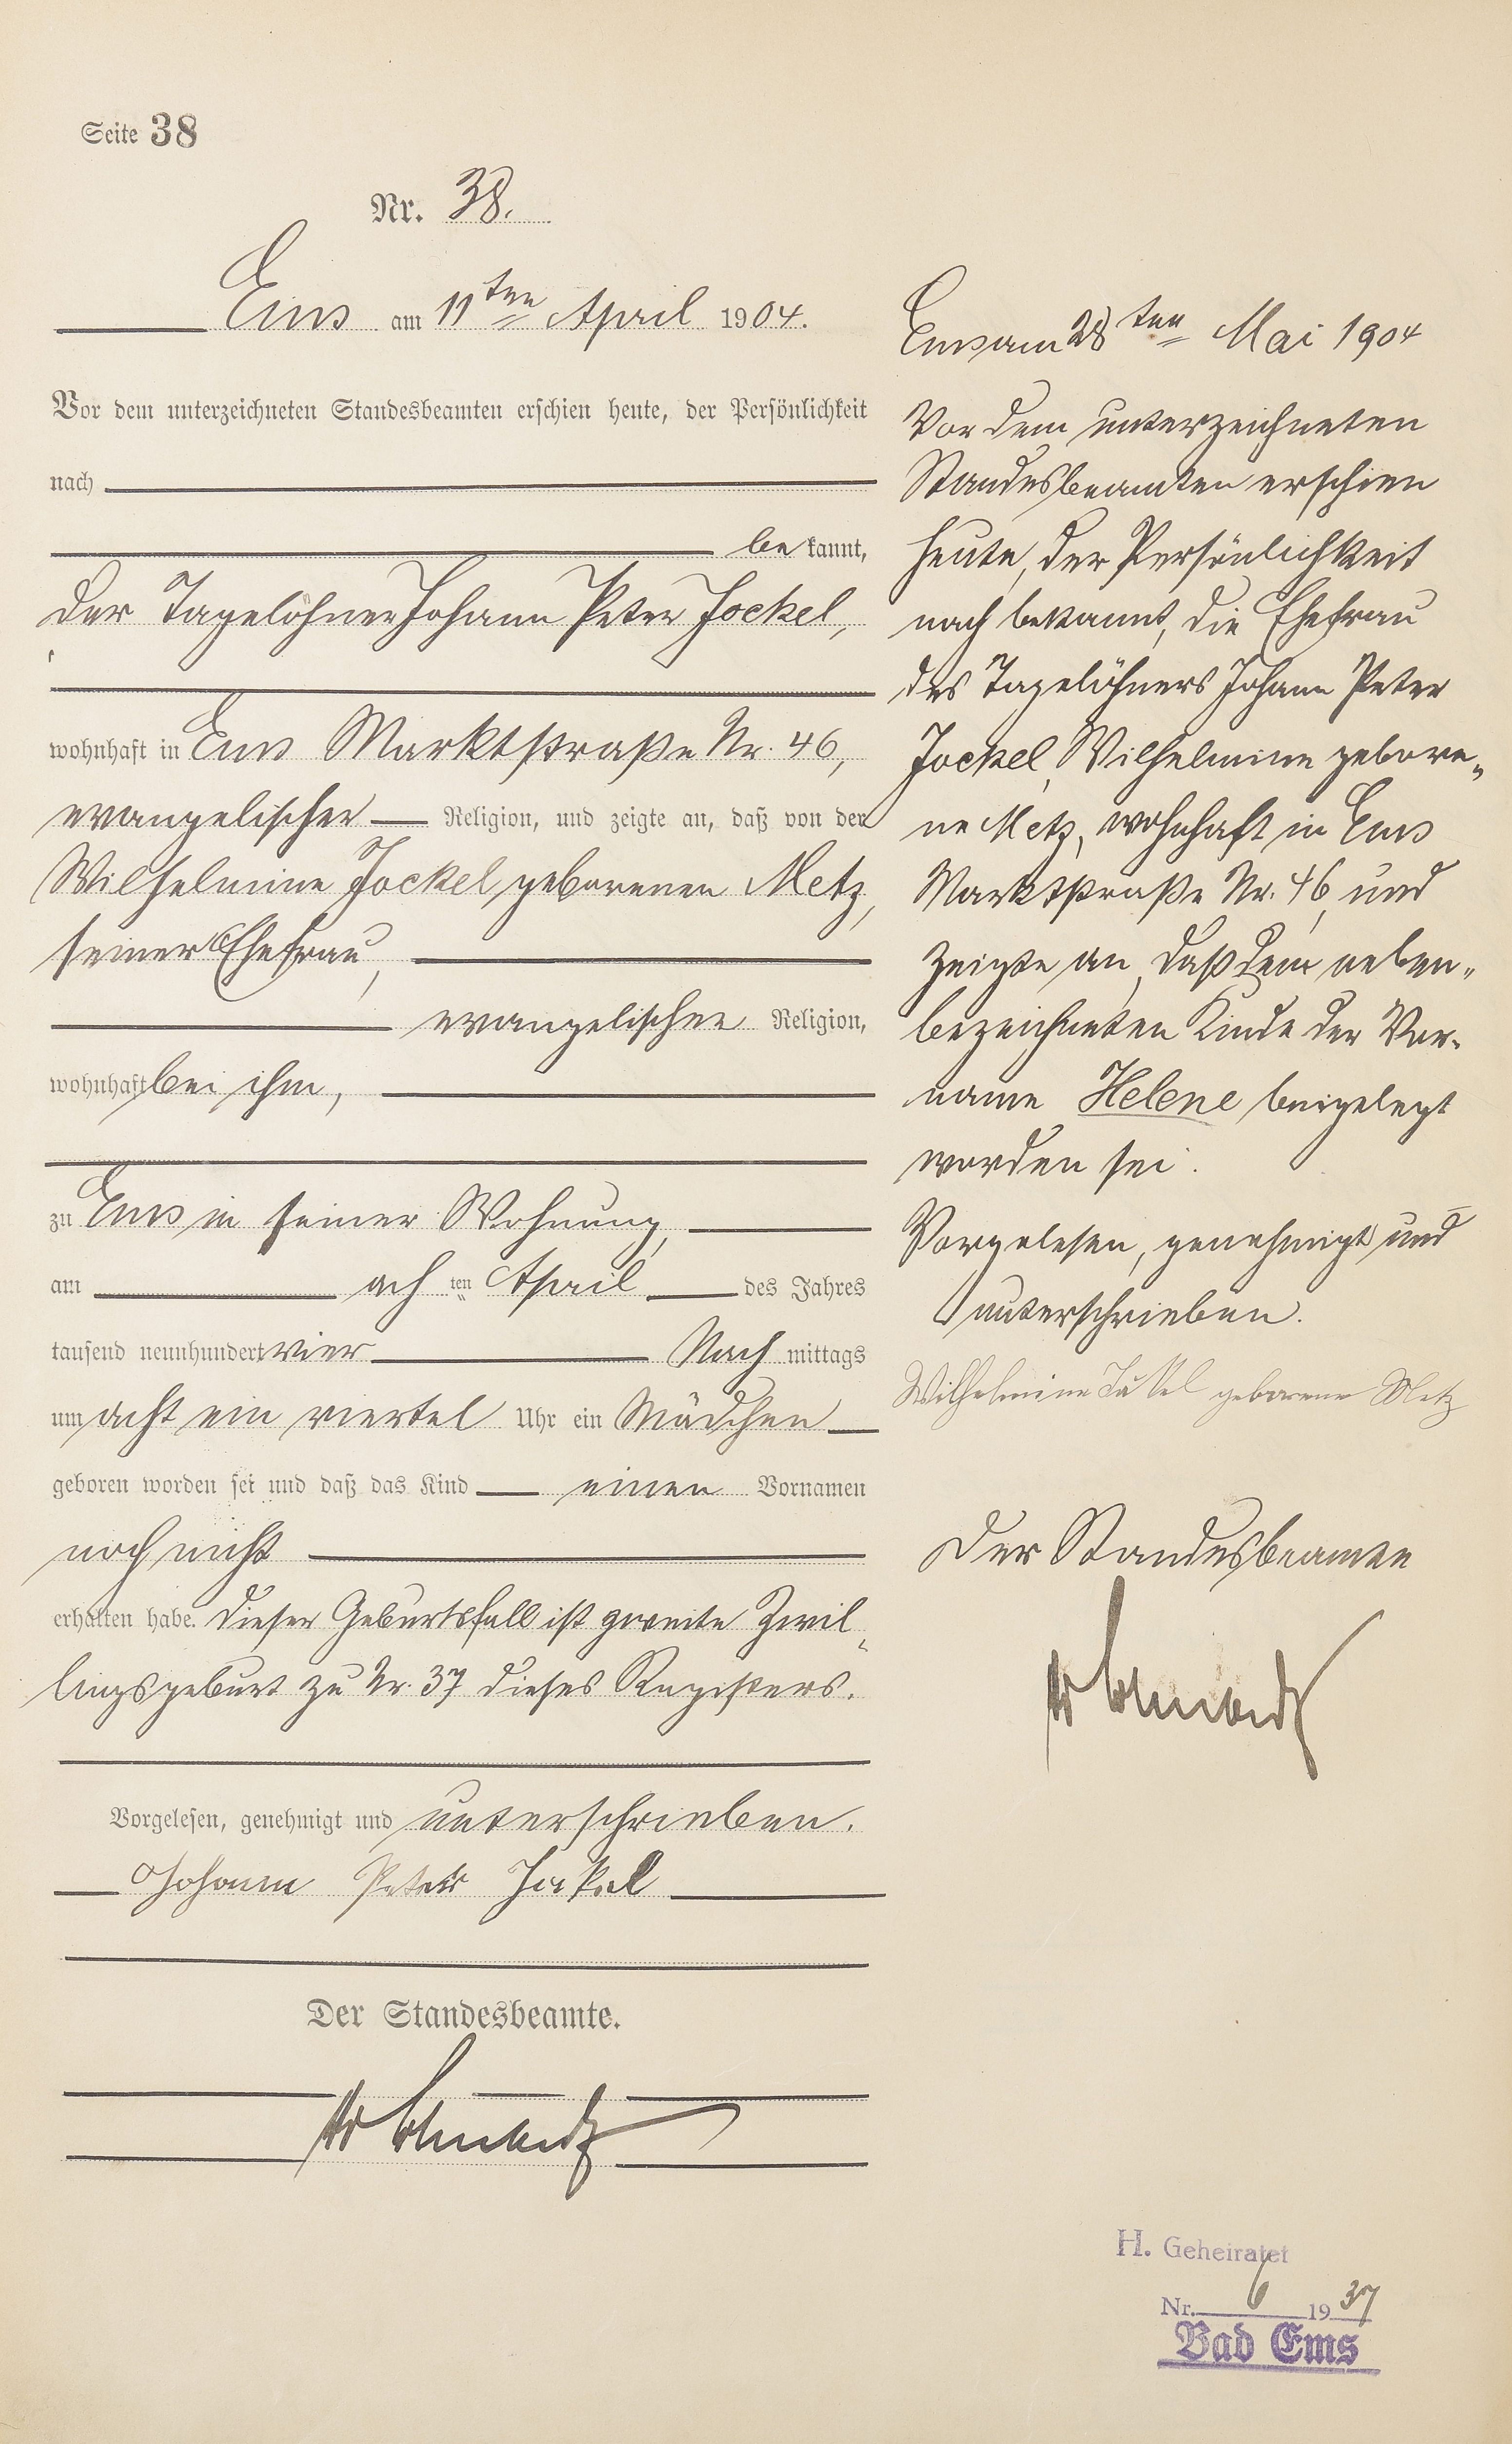 Seite 38
Nr. 38.
Ems am 11ten April 1904.
Vor dem unterzeichneten Standesbeamten erschien heute, der Persönlichkeit
nach
be kannt,
der Tagelöhner Johann Peter Jockel,
wohnhaft in Ems Marktstraße Nr. 46,
evangelischer Religion, und zeigte an, daß von der
Wilhelmine Jockel geborenen Metz,
seiner Ehefrau,
evangelischer Religion,
wohnhaft bei ihm,
zu Ems in seiner Wohnung,
am ach ten April des Jahres
tausend neunhundert vier Nach mittags
um acht ein viertel Uhr ein Mädchen
geboren worden sei und daß das Kind einen Vornamen
noch nicht
erhalten habe. Dieser Geburtsfall ist zweite Zwil-
lingsgeburt zu Nr. 37 dieses Registers.
Vorgelesen, genehmigt und unterschrieben.
Johann Peter Jockel
Der Standesbeamte.
Ems am 28ten Mai 1904
Vor dem unterzeichneten
Standesbeamten erschien
heute, der Persönlichkeit
nach bekannt, die Ehefrau
des Tagelöhners Johann Peter
Jockel, Wilhelmine gebore-
ne Metz, wohnhaft in Ems
Marktstraße Nr. 46, und
zeigte an, daß dem neben-
bezeichneten Kinde der Vor-
name Helene beigelegt
worden sei.
Vorgelesen, genehmigt und
unterschrieben.
Wilhelmine Jäkel geborene Metz
Der Standesbeamte
H. Geheiratet
Nr. 6 1937
Bad Ems